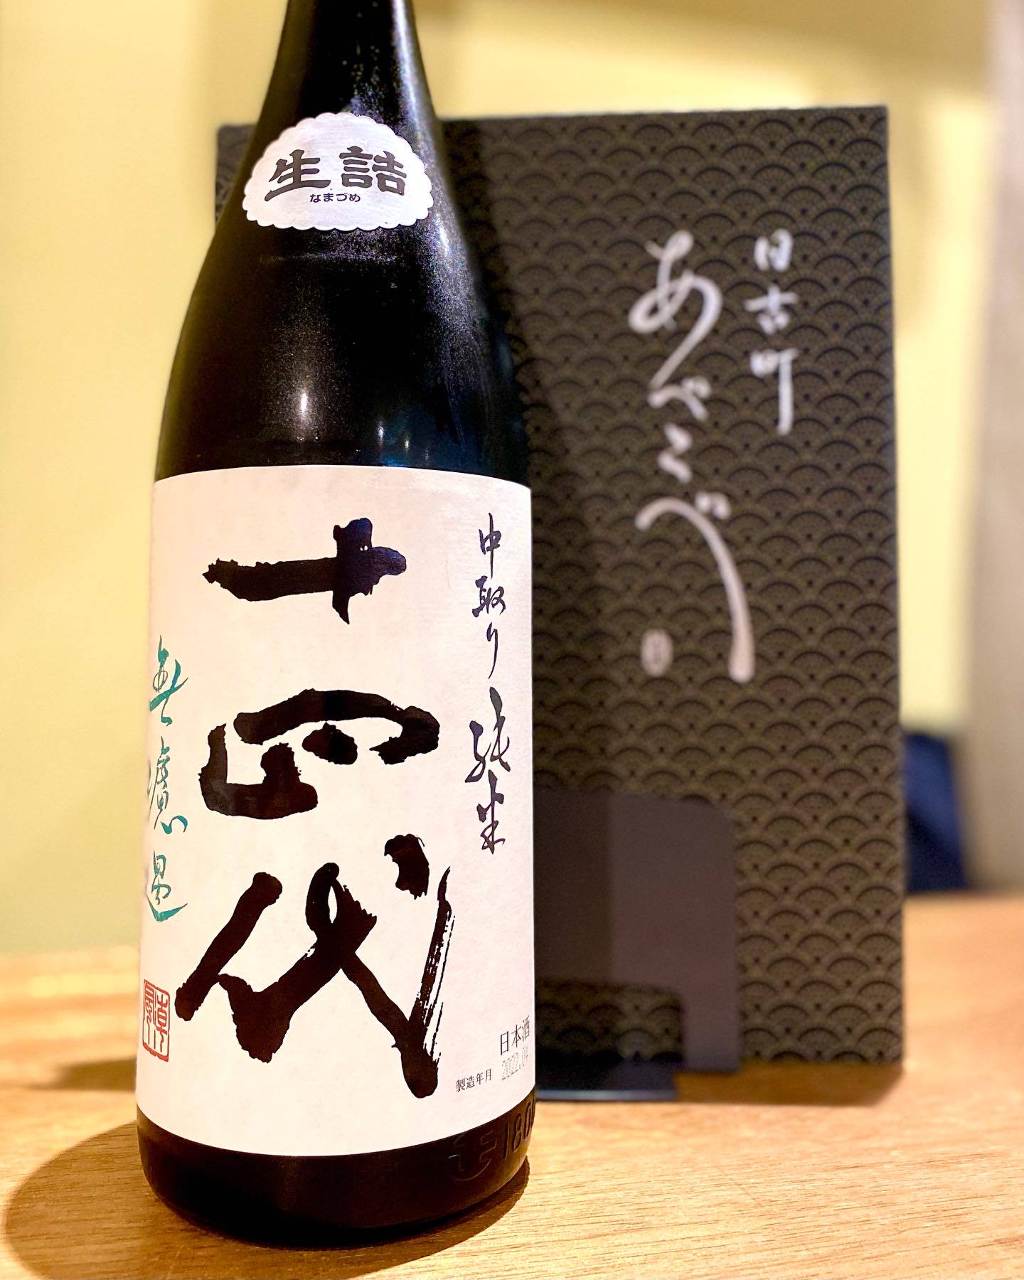 生詰
なまづめ
中取り純米
十四代
無濾過
日本酒
製造年月 2022.04
日吉町
あべこべ